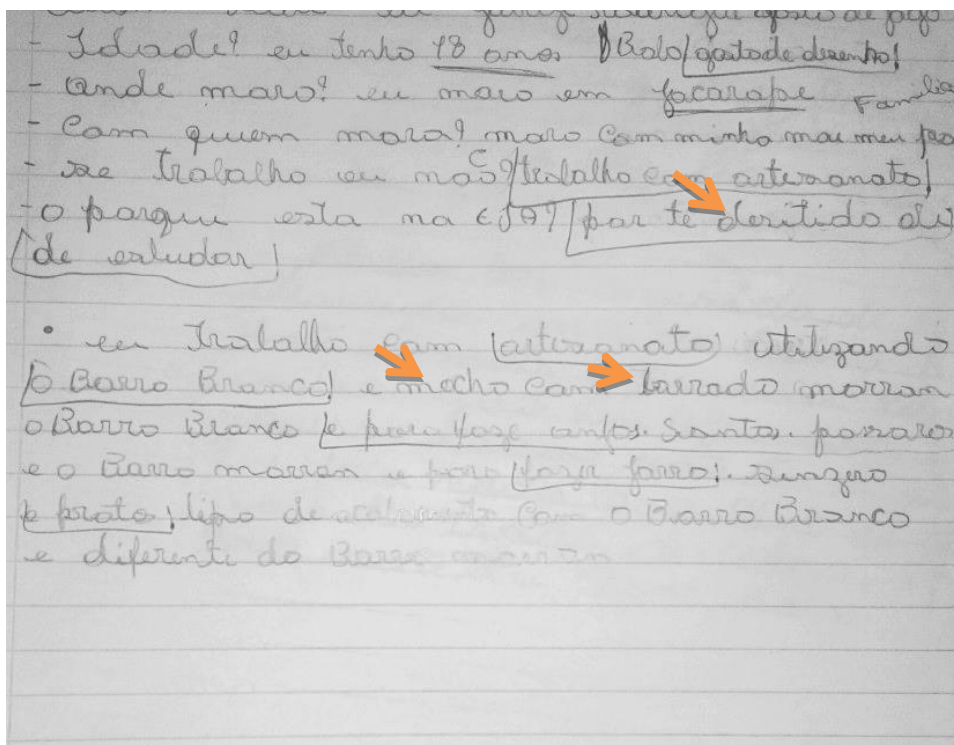 - Idade? eu tenho 18 anos Bolo/gosto de desenho/
- Onde moro? eu moro em Jacarape Familia
- Com quem mora? moro com minha mau meu
- se trabalho ou não? trabalho com artesanato
- o porque esta na EJA? por te desitido
de estudar
• eu trabalho com artesanato utilizando
o Barro Branco e mecho com barrado morran
o Barro Branco e para faze anfos. Santos. passaros
e o Barro marran e para fazer jarro.
e prato, tipo de com o Barro Branco
e diferente do Barro